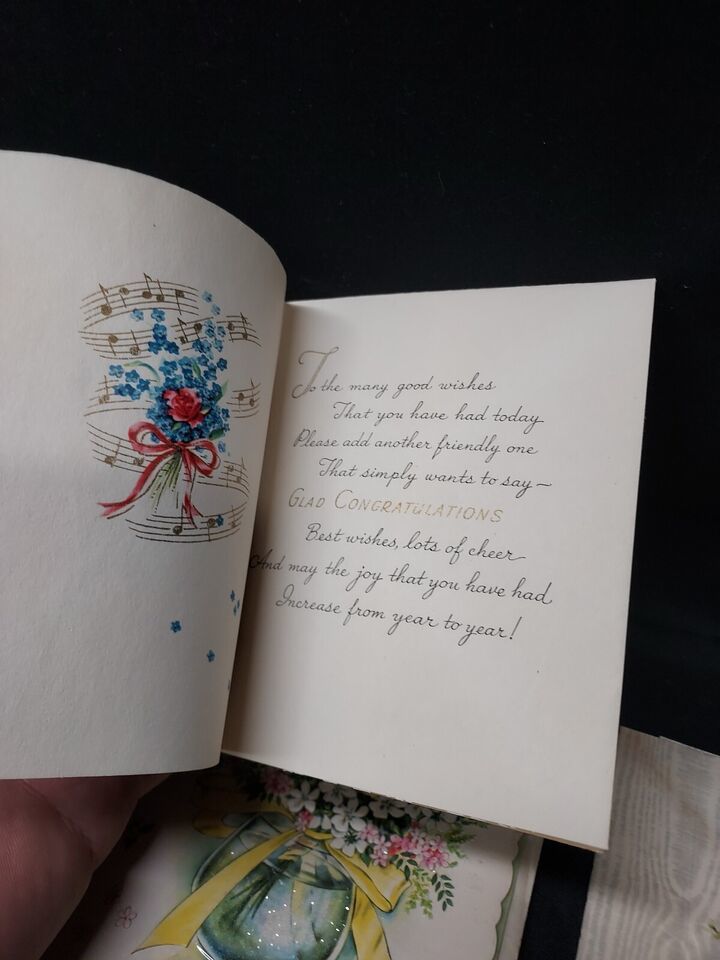 To the many good wishes
That you have had today
Please add another friendly one
That simply wants to say—
GLAD CONGRATULATIONS
Best wishes, lots of cheer
And may the joy that you have had
Increase from year to year!